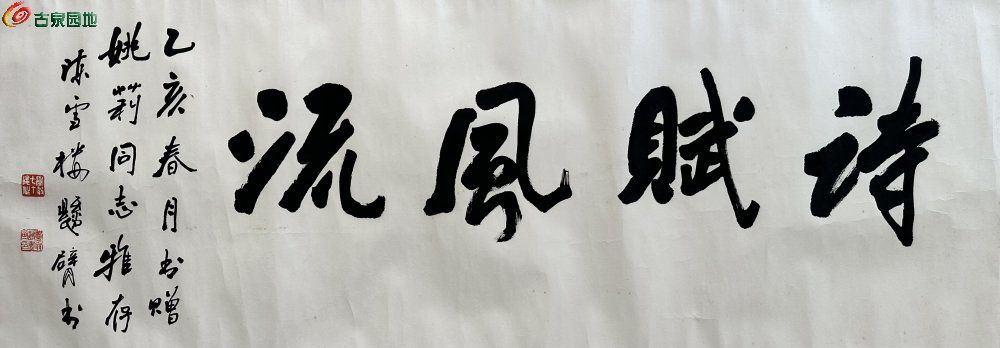 古泉园地
詩賦風流
乙亥春月书赠
姚莉同志雅存
陈雪楼悬臂书